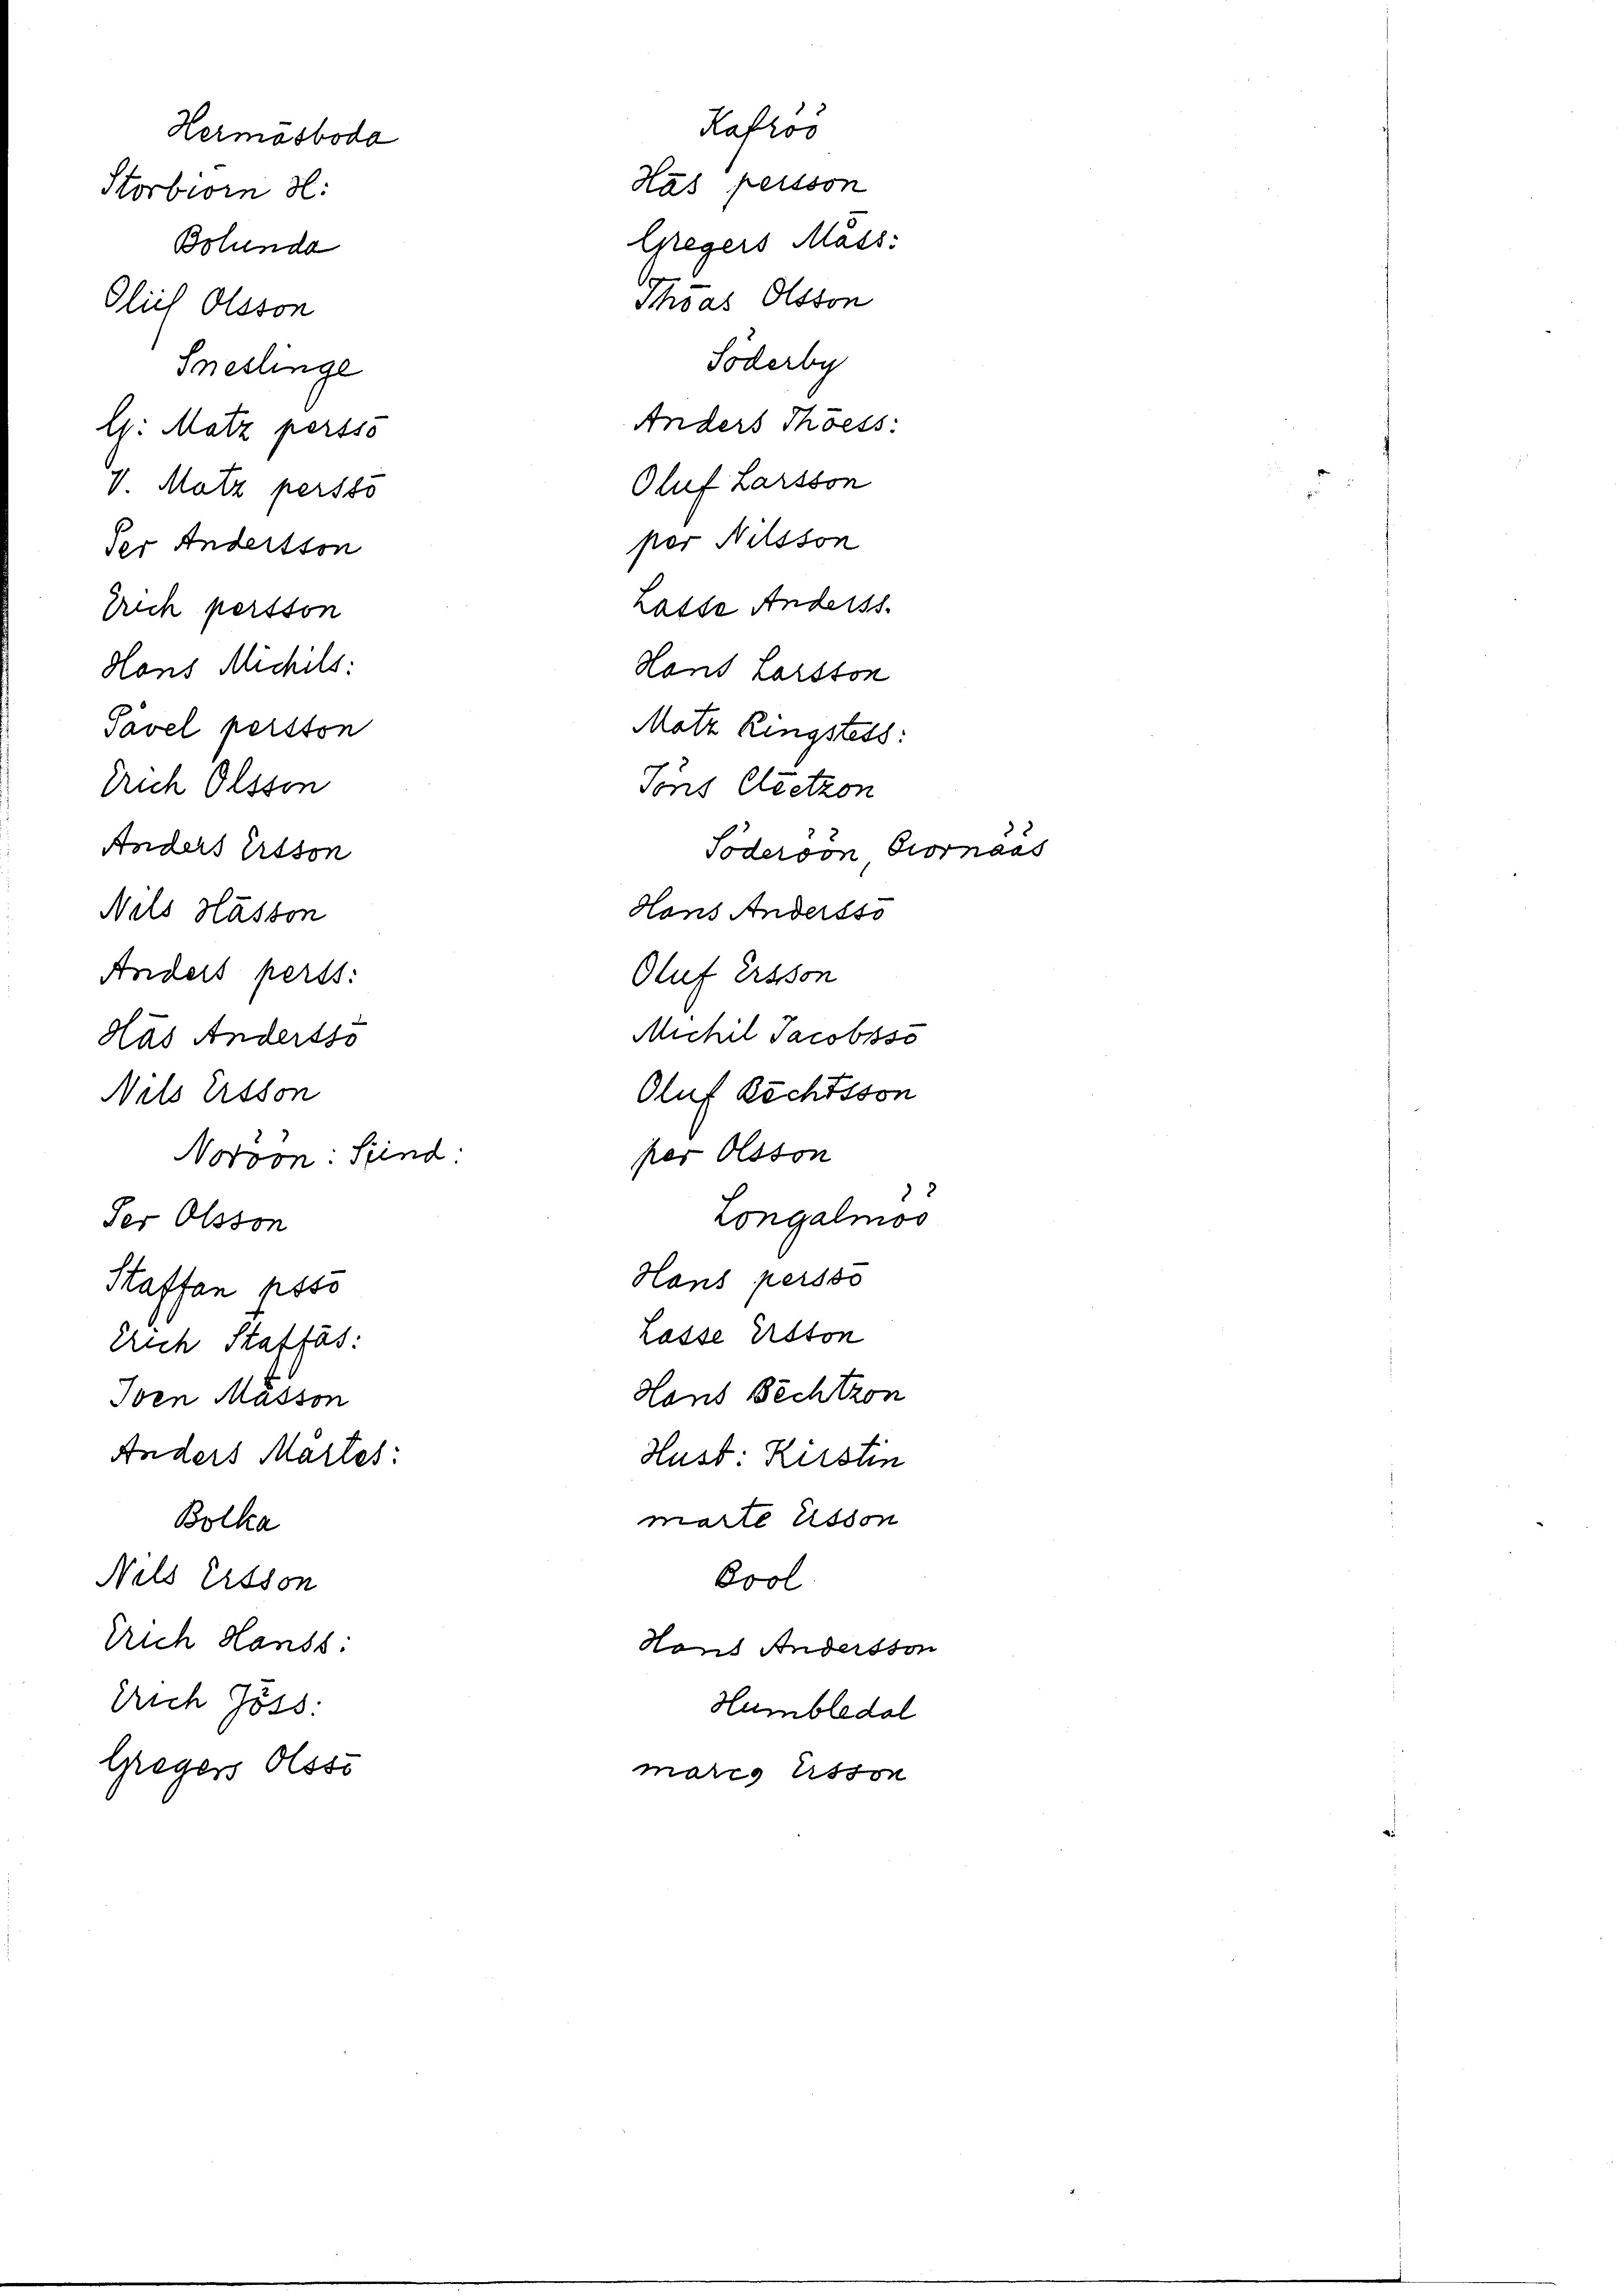 Hermāsboda
Storbiorn H:
Bolunda
Olüf Olsson
Sneslinge
G: Matz perssō
V. Matz perssō
Per Andersson
Erich persson
Hans Michils:
Påvel persson
Erich Olsson
Anders Ersson
Nils Hāsson
Anders perss:
Hās Anderssō
Nils Ersson
Noröön: Sünd:
Per Olsson
Staffan pssō
Erich Staffās:
Joen Māsson
Anders Mārtes:
Bolka
Nils Ersson
Erich Hanss:
Erich Jöss:
Gregers Olssō
Rafröö
Hās persson
Gregers Māss:
Thōas Olsson
Söderby
Anders Thōess:
Oluf Larsson
per Nilsson
Lasse Anderss.
Hans Larsson
Matz Ringstess:
Jöns
Söderöön, Biornääs
Hans Anderssō
Oluf Ersson
Michil Jacobssō
Oluf Bēchtsson
per Olsson
Longalmöö
Hans perssō
Lasse Ersson
Hans Bēchtzon
Hust: Kirstin
marte Ersson
Bool
Hans Andersson
Humbledal
Ersson